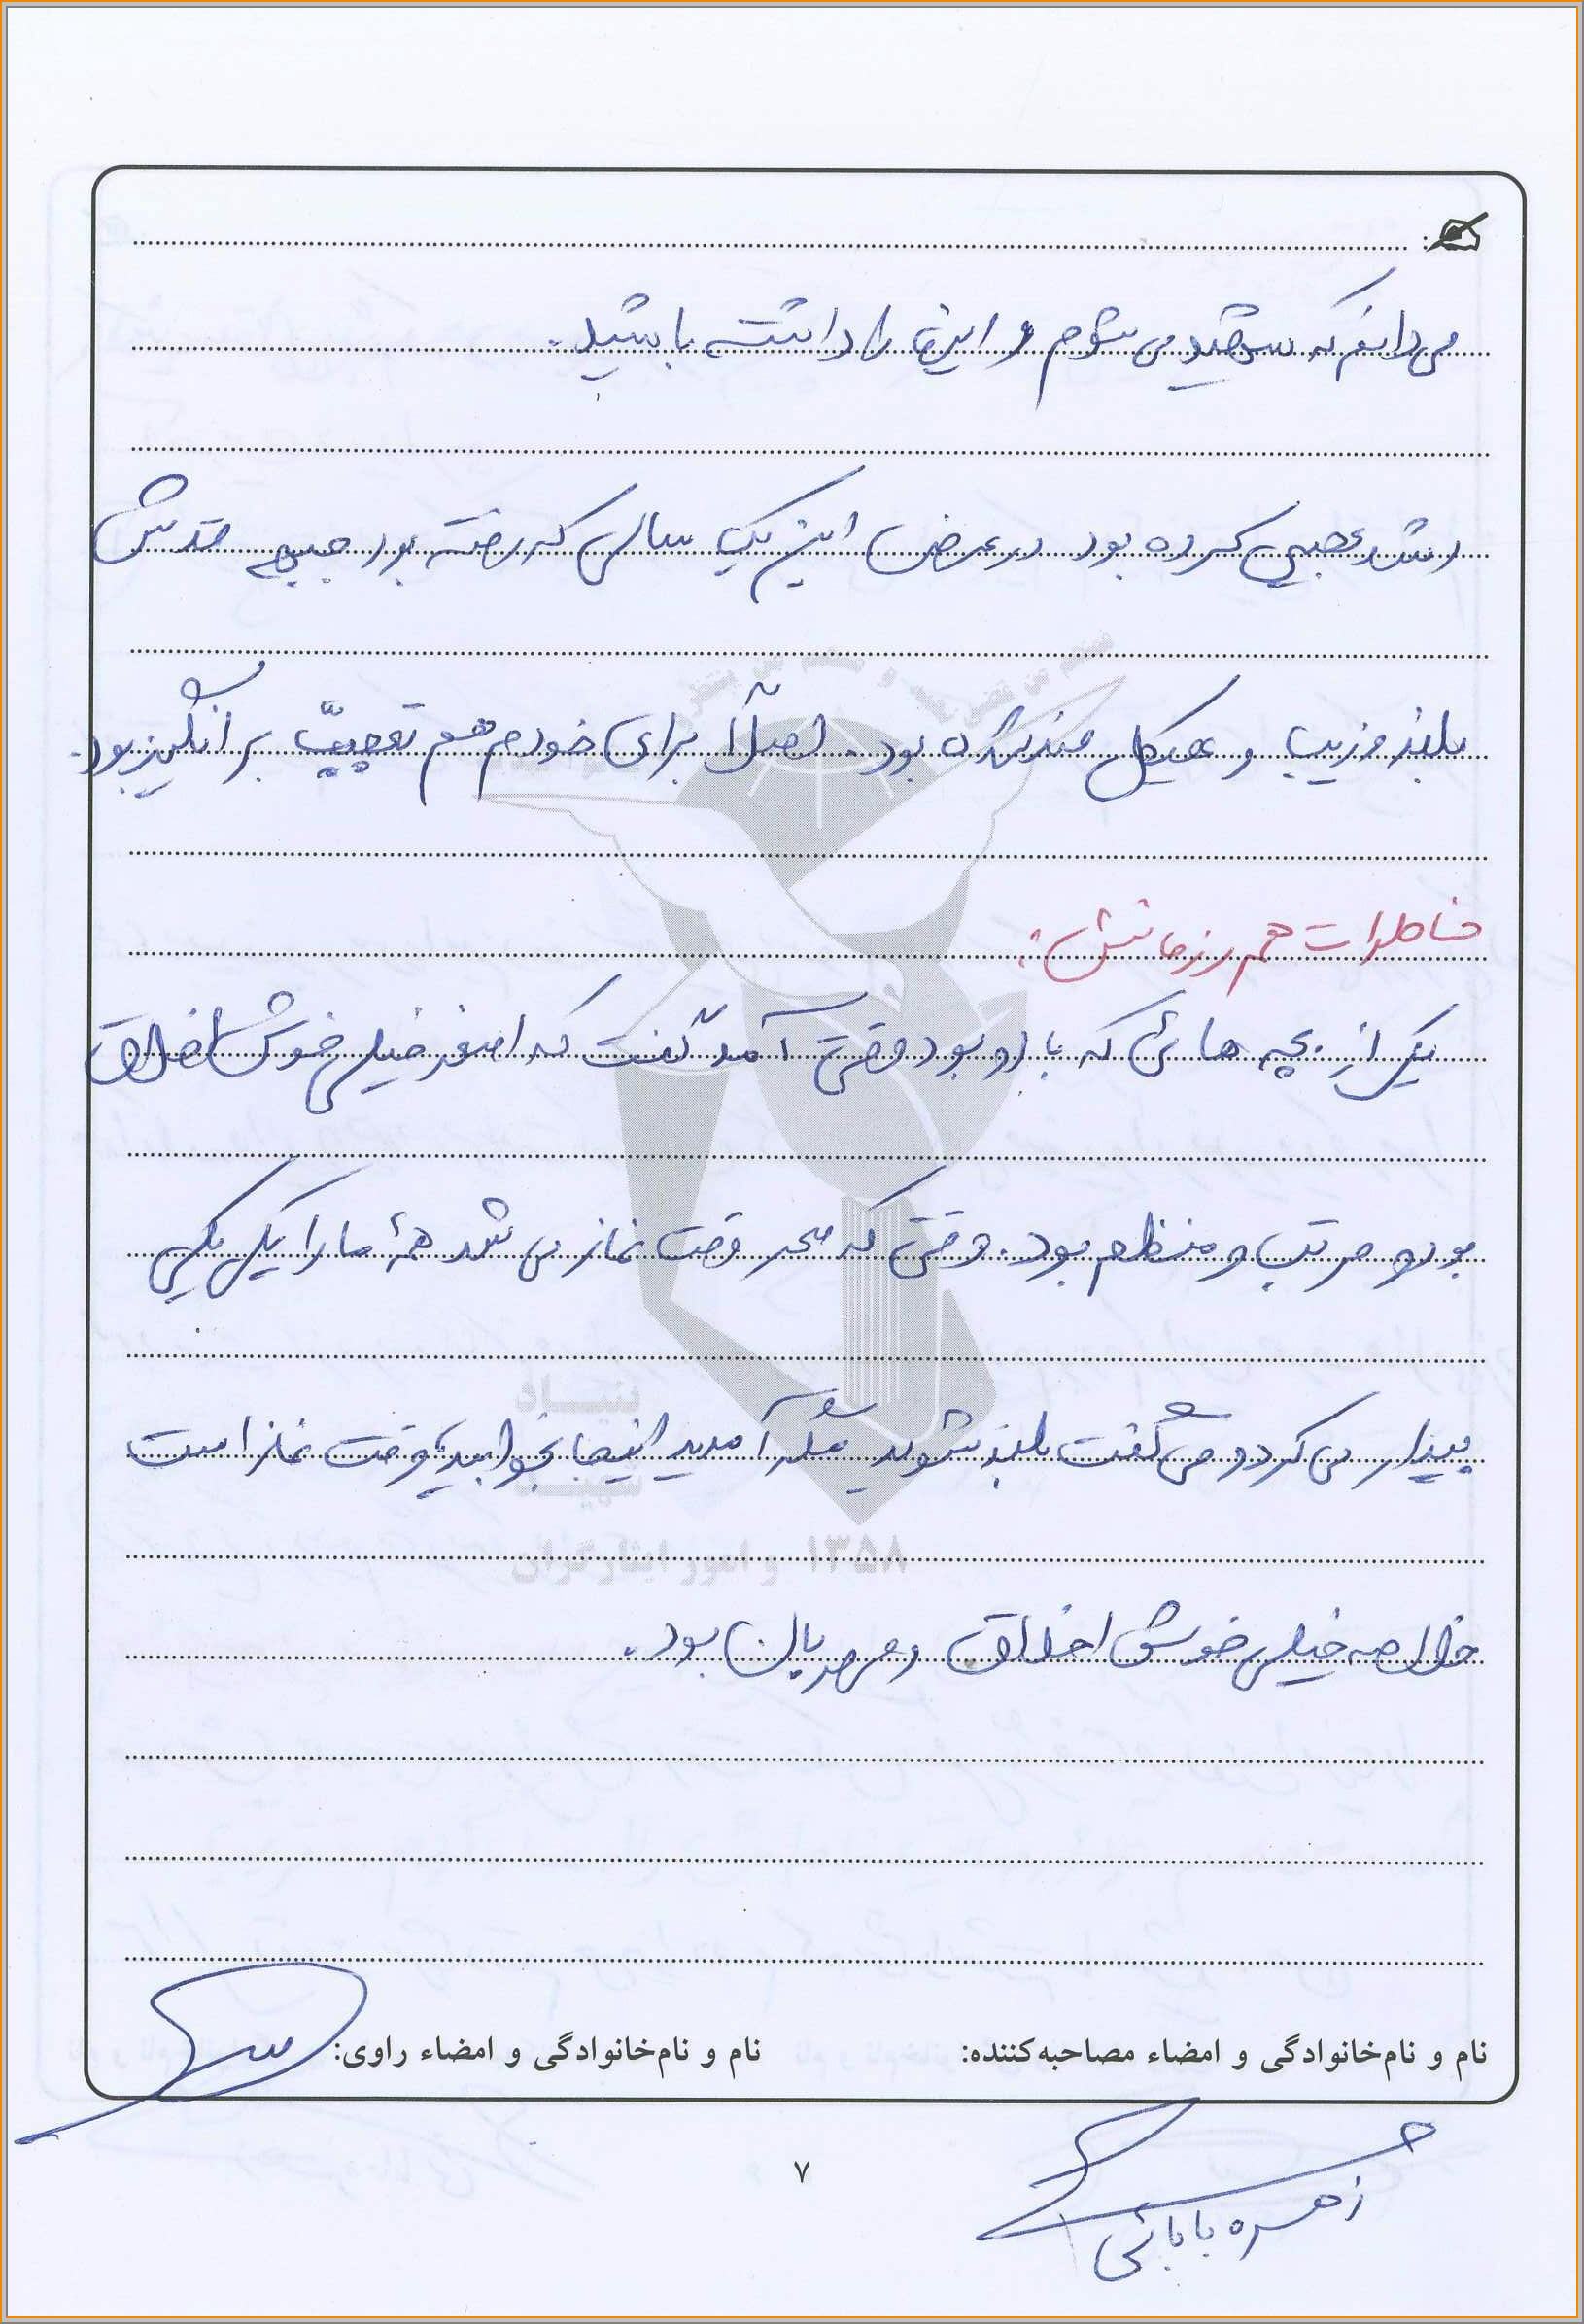 می دانم که شهید می شوم و اینها را داشته باشید.
رشد عجیبی کرده بود در عرض این یک سالی که رفته بود جبهه قدش
بلند و زیبا و هیکل مند شده بود. اصلاً برای خودم هم تعجب بر انگیز بود.
خاطرات هم رزمانش:
یکی از بچه هائی که با او بود وقتی آمد گفت که اصغر خیلی خوش اخلاق
بود و مرتب و منظم بود. وقتی که سحر وقت نماز می شد همۀ ما را یکی یکی
بیدار می کرد و می گفت بلند شوید مگر آمدید اینجا بخوابید، وقت نماز است
خلاصه خیلی خوش اخلاق و مهربان بود.
بنیاد
شهید
۱۳۵۸ و امور ایثارگران
نام و نام‌خانوادگی و امضاء مصاحبه‌کننده: نام و نام‌خانوادگی و امضاء راوی:
۷
زهره بابائی